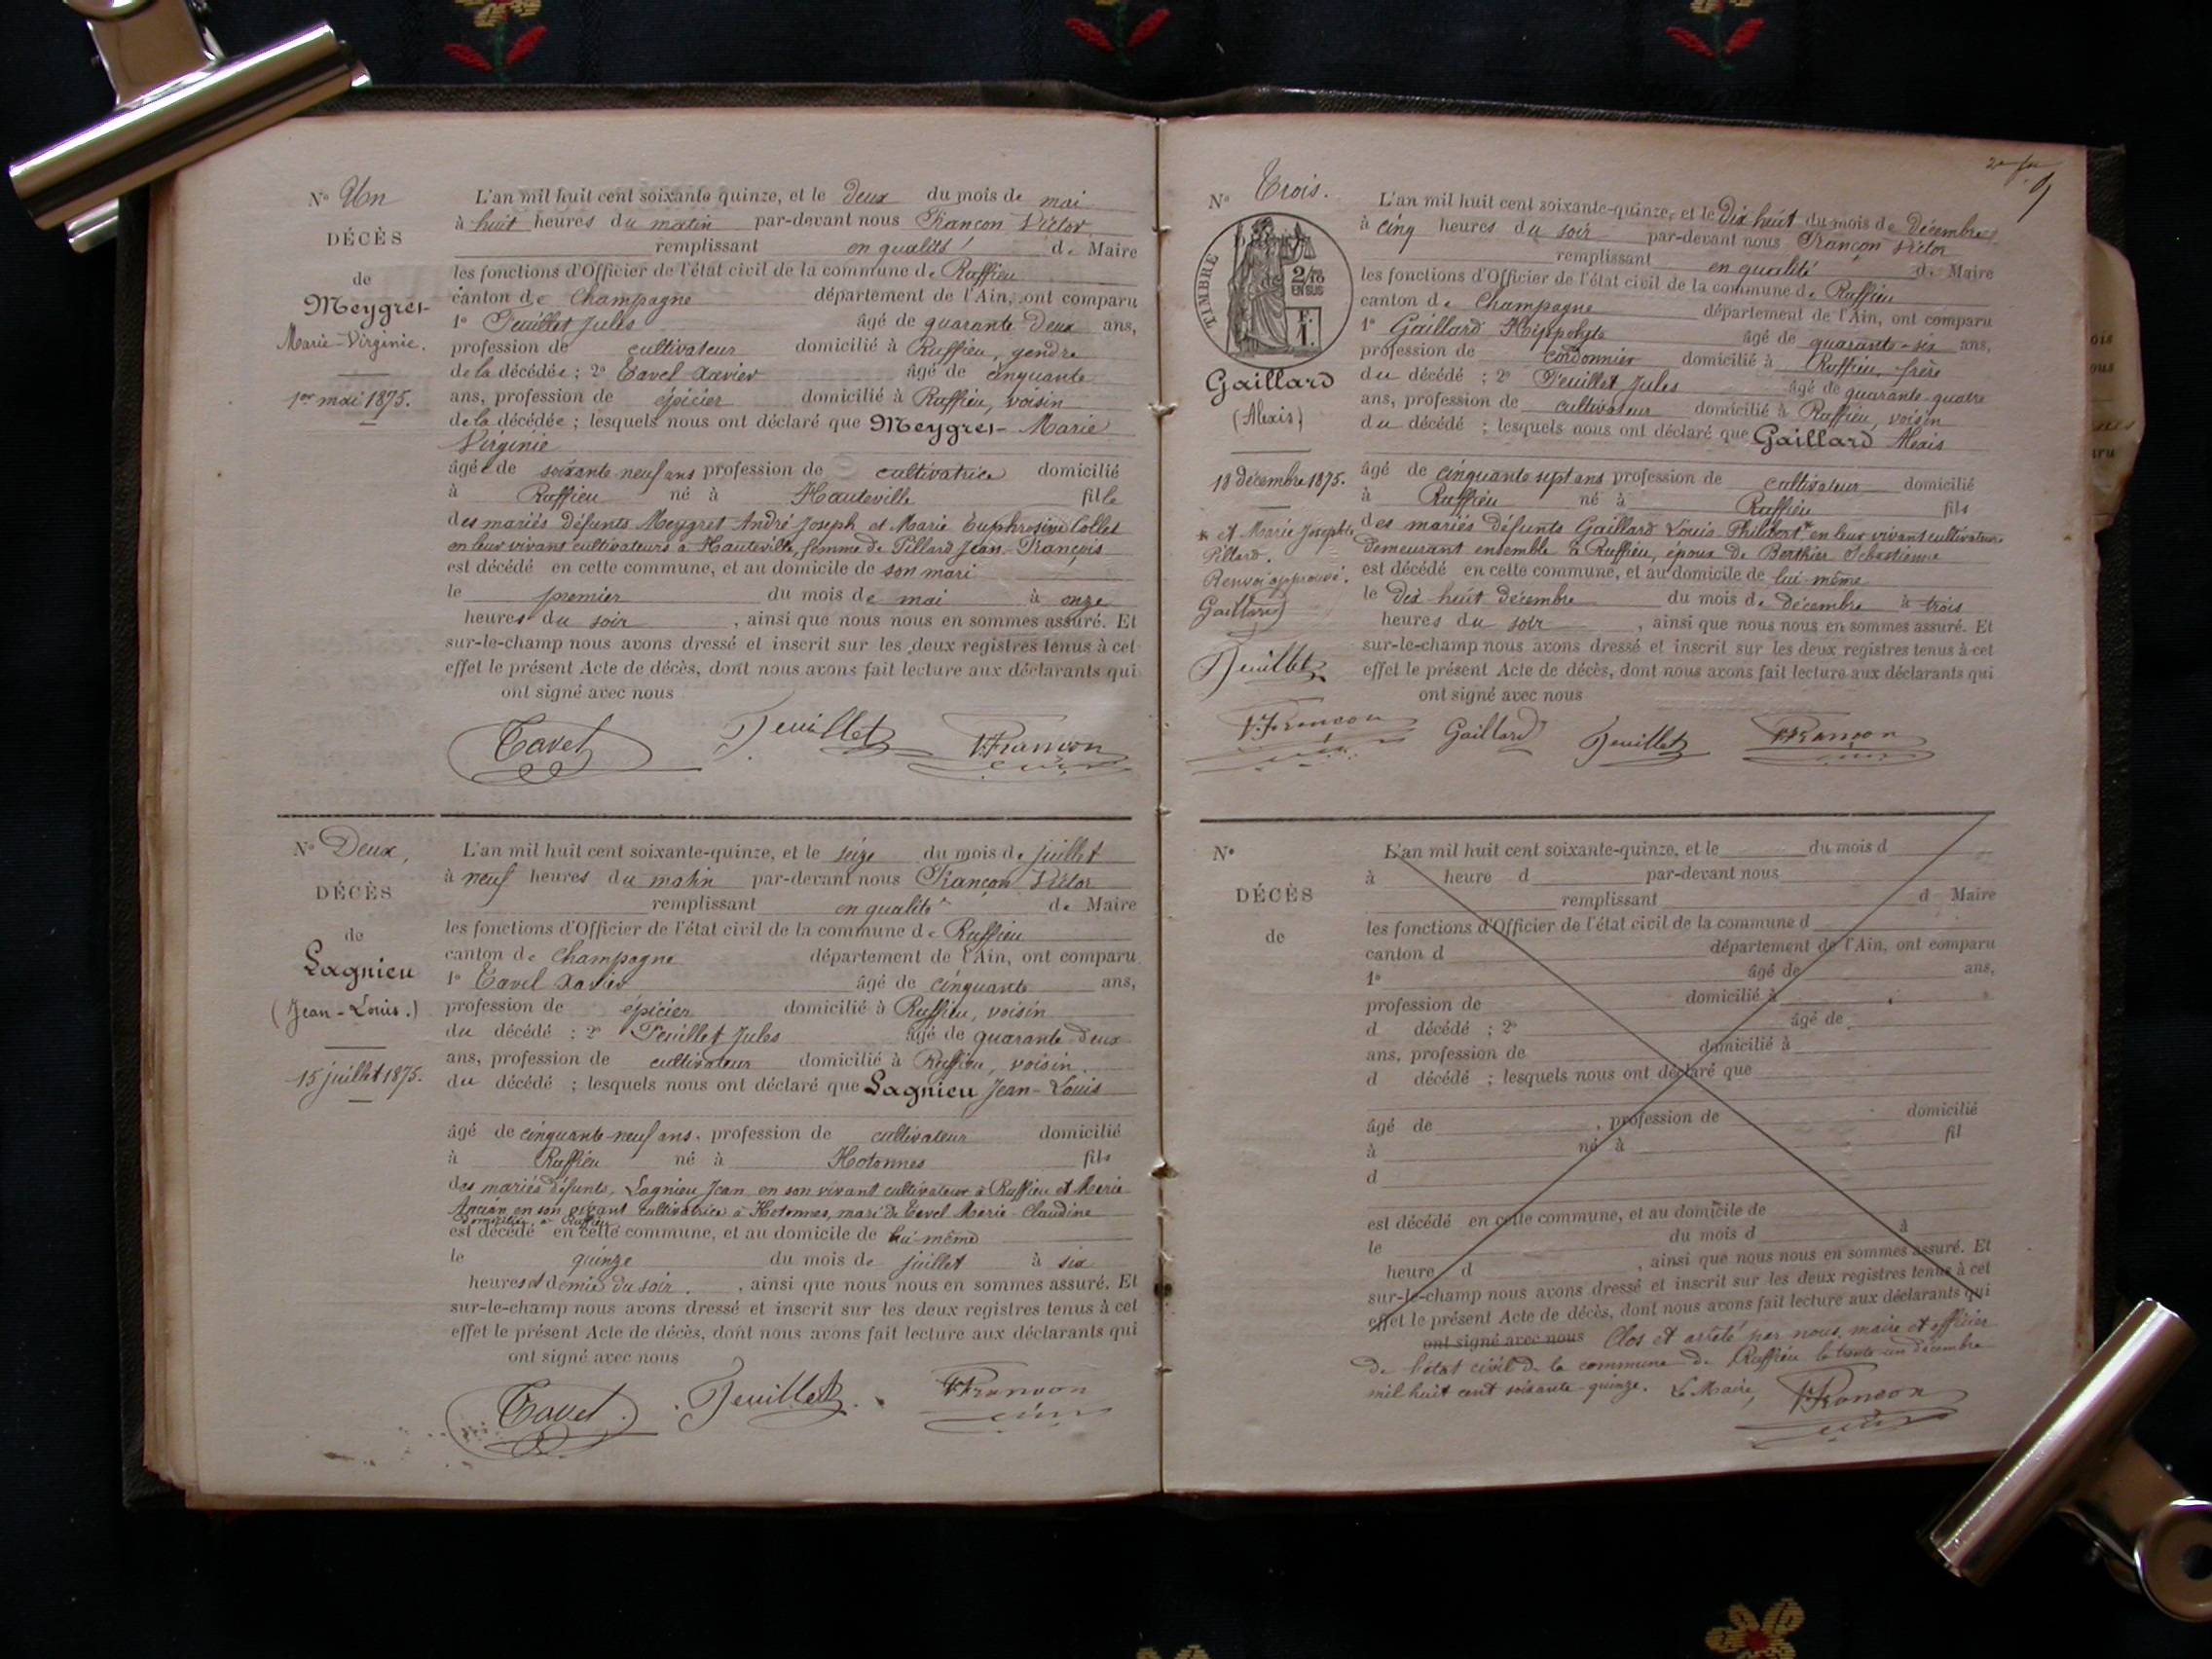 N° Un
DÉCÈS
de
Meygret
Marie-Virginie.
1er mai 1875.
L'an mil huit cent soixante quinze, et le deux du mois de mai
à huit heures du matin par-devant nous Françon Victor
remplissant en qualité de Maire
les fonctions d'Officier de l'état civil de la commune de Ruffieu
canton de Champagne département de l'Ain, ont comparu
1° Feuillet Jules âgé de quarante deux ans,
profession de cultivateur domicilié à Ruffieu, gendre
de la décédée ; 2° Tavel Xavier âgé de cinquante
ans, profession de épicier domicilié à Ruffieu, voisin
de la décédée ; lesquels nous ont déclaré que Meygret Marie
Virginie
âgée de soixante neuf ans profession de cultivatrice domicilié
à Ruffieu né à Hauteville fille
des mariés défunts Meygret André Joseph et Marie Euphrosine Collet
en leur vivant cultivateurs à Hauteville, femme de Pillard Jean-François
est décédé en cette commune, et au domicile de son mari
le premier du mois de mai à onze
heures du soir, ainsi que nous nous en sommes assuré. Et
sur-le-champ nous avons dressé et inscrit sur les deux registres tenus à cet
effet le présent Acte de décès, dont nous avons fait lecture aux déclarants qui
ont signé avec nous
Tavel Feuillet V. Françon
N° Deux,
DÉCÈS
de
Lagnieu
(Jean-Louis.)
15 juillet 1875.
L'an mil huit cent soixante-quinze, et le seize du mois de juillet
à neuf heures du matin par-devant nous Françon Victor
remplissant en qualité de Maire
les fonctions d'Officier de l'état civil de la commune de Ruffieu
canton de Champagne département de l'Ain, ont comparu
1° Tavel Xavier âgé de cinquante ans,
profession de épicier domicilié à Ruffieu, voisin
du décédé ; 2° Feuillet Jules âgé de quarante deux
ans, profession de cultivateur domicilié à Ruffieu, voisin.
du décédé ; lesquels nous ont déclaré que Lagnieu Jean-Louis
âgé de cinquante-neuf ans, profession de cultivateur domicilié
à Ruffieu né à Hotonnes fils
des mariés défunts, Lagnieu Jean en son vivant cultivateur à Ruffieu et Marie
Ancian en son vivant cultivatrice à Hotonnes, mari de Tavel Marie-Claudine
domiciliée à Ruffieu
est décédé en cette commune, et au domicile de lui-même
le quinze du mois de juillet à six
heures et demie du soir, ainsi que nous nous en sommes assuré. Et
sur-le-champ nous avons dressé et inscrit sur les deux registres tenus à cet
effet le présent Acte de décès, dont nous avons fait lecture aux déclarants qui
ont signé avec nous
Tavel Feuillet V. Françon
N° Trois.
TIMBRE
2/10
EN SUS
Gaillard
(Alexis)
18 décembre 1875.
* et Marie Josephte
Pillard.
Renvoi approuvé.
Gaillard
Feuillet
V. Françon
L'an mil huit cent soixante-quinze, et le Dix huit du mois de Décembre
à cinq heures du soir par-devant nous Françon Victor
remplissant en qualité de Maire
les fonctions d'Officier de l'état civil de la commune de Ruffieu
canton de Champagne département de l'Ain, ont comparu
1° Gaillard Hippolyte âgé de quarante-six ans,
profession de cordonnier domicilié à Ruffieu, frère
du décédé ; 2° Feuillet Jules âgé de quarante-quatre
ans, profession de cultivateur domicilié à Ruffieu, voisin
du décédé ; lesquels nous ont déclaré que Gaillard Alexis
âgé de cinquante sept ans profession de cultivateur domicilié
à Ruffieu né à Ruffieu fils
des mariés défunts Gaillard Louis Philibert * en leur vivant cultivateurs
demeurant ensemble à Ruffieu, époux de Berthier Sébastienne
est décédé en cette commune, et au domicile de lui-même
le dix huit décembre du mois de décembre à trois
heures du soir, ainsi que nous nous en sommes assuré. Et
sur-le-champ nous avons dressé et inscrit sur les deux registres tenus à cet
effet le présent Acte de décès, dont nous avons fait lecture aux déclarants qui
ont signé avec nous
Gaillard Feuillet V. Françon
N°
DÉCÈS
de
L'an mil huit cent soixante-quinze, et le du mois d
à heure d par-devant nous
remplissant d Maire
les fonctions d'Officier de l'état civil de la commune d
canton d département de l'Ain, ont comparu
1° âgé de ans,
profession de domicilié à
d décédé ; 2° âgé de
ans, profession de domicilié à
d décédé ; lesquels nous ont déclaré que
âgé de , profession de domicilié
à né à fil
d
est décédé en cette commune, et au domicile de
le du mois d à
heure d , ainsi que nous nous en sommes assuré. Et
sur-le-champ nous avons dressé et inscrit sur les deux registres tenus à cet
effet le présent Acte de décès, dont nous avons fait lecture aux déclarants qui
ont signé avec nous Clos et arrêté par nous, maire et officier
de l'état civil de la commune de Ruffieu le trente un décembre
mil huit cent soixante-quinze. Le Maire, V. Françon